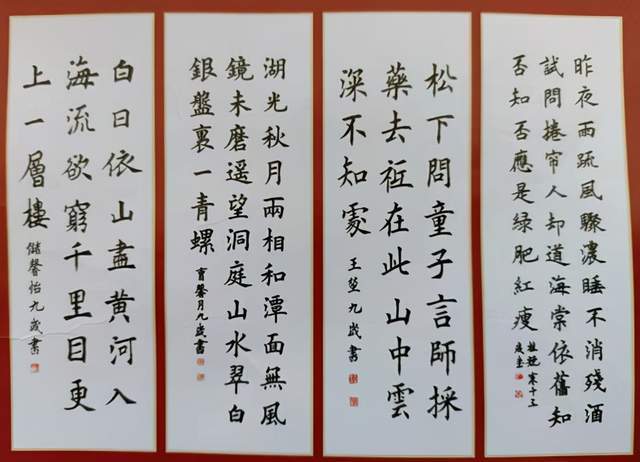 昨夜雨疏風驟濃睡不消殘酒
試問捲帘人却道海棠依舊知
否知否應是绿肥紅瘦
十三
松下問童子言師採
藥去祗在此山中雲
深不知處
王
九歲書
湖光秋月兩相和潭面無風
鏡未磨遥望洞庭山水翠白
銀盤裏一青螺
馨月九歲書
白日依山盡黄河入
海流欲窮千里目更
上一層樓
儲馨怡九歲書